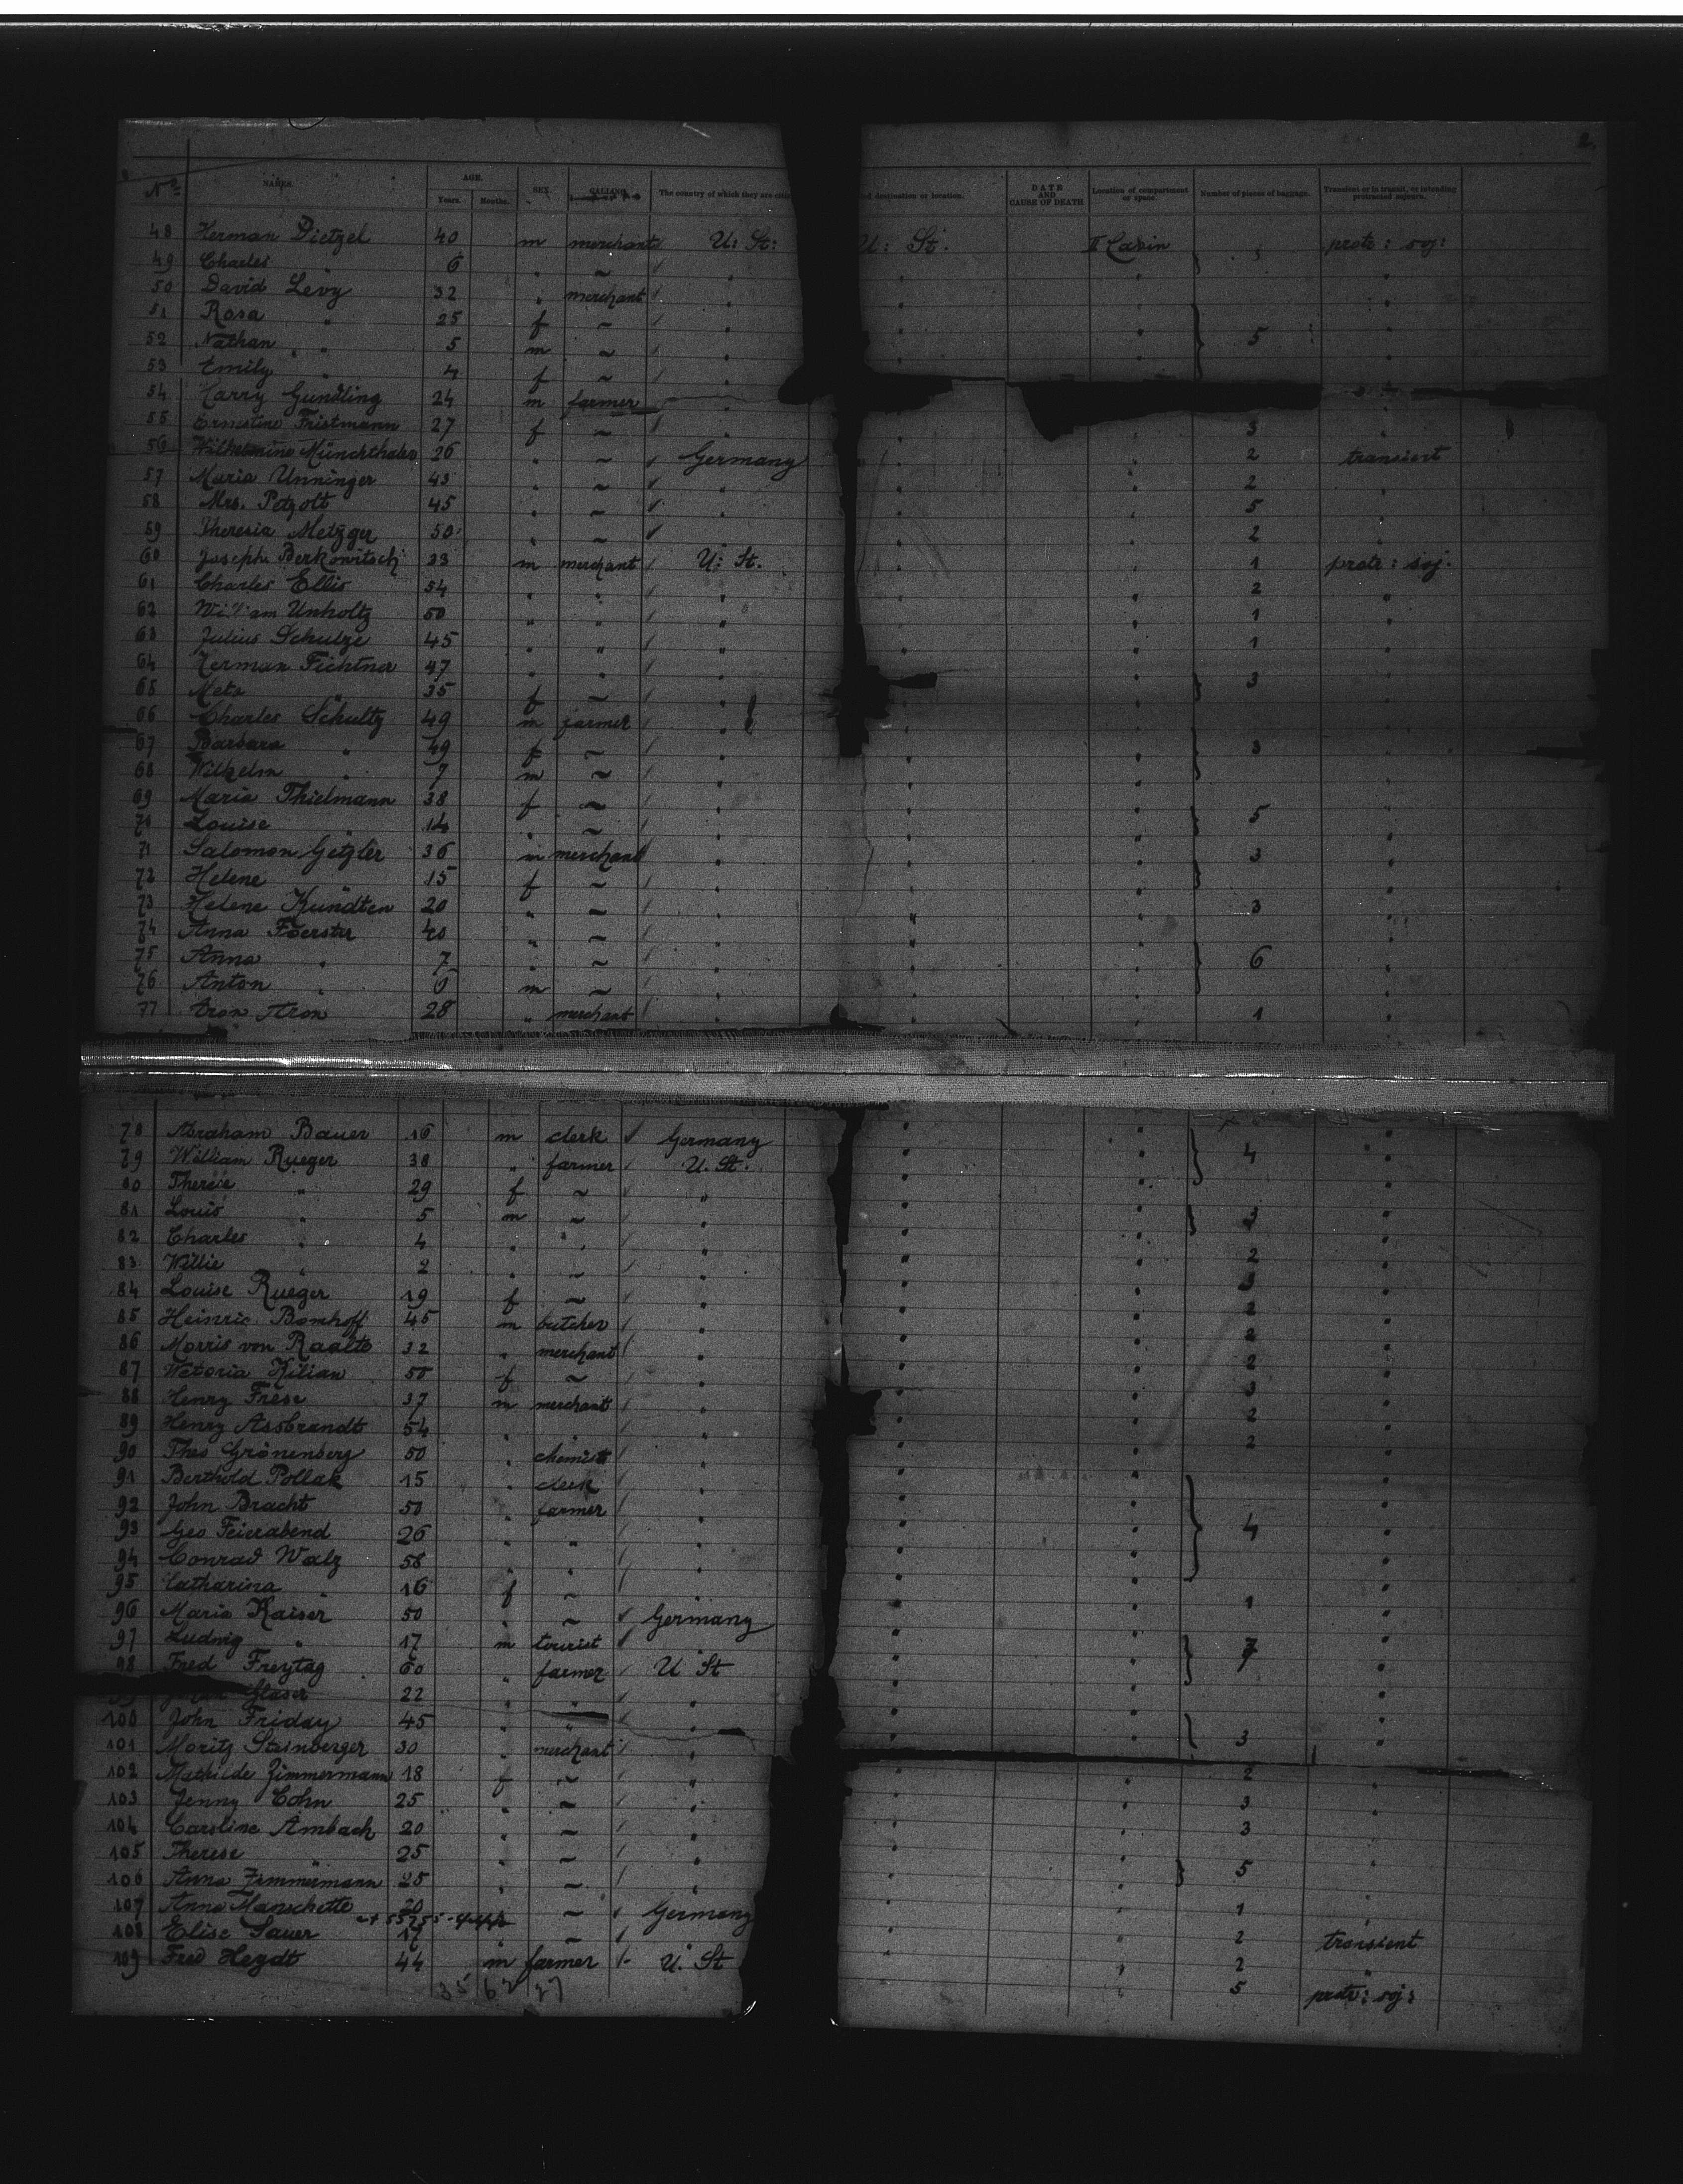 2.
No. NAMES. AGE. Years. Months. SEX. CALLING. The country of which they are citiz d destination or location. DATE AND CAUSE OF DEATH Location of compartment or space. Number of pieces of baggage. Transient or in transit, or intending protracted sojourn.
48 Herman Dietzel 40 m merchant U: St: U: St. II Cabin protr: soj:
49 Charles " 6 " ~ " "
50 David Levy 32 " merchant " "
51 Rosa " 25 f ~ " "
52 Nathan " 5 m ~ " " 5 "
53 Emily " 4 f ~ " "
54 Harry Gundling 24 m farmer
55 Ernestine Fristmann 27 f ~ " 3 "
56 Wilhelmine Münchthaler 26 " ~ Germany " 2 transient
57 Maria Unninger 43 " ~ " " 2 "
58 Mrs. Petzolt 45 " ~ " " 5 "
59 Theresia Metzger 50 " ~ " " 2 "
60 Joseph Berkowitsch 23 m merchant U: St. " 1 protr: soj.
61 Charles Ellis 54 " " " " 2 "
62 William Unholtz 50 " " " " 1 "
63 Julius Schulze 45 " " " " 1 "
64 Herman Fichtner 47 " " " "
65 Meta " 35 f ~ " " 3 "
66 Charles Schultz 49 m farmer "
67 Barbara " 49 f ~ " " 3 "
68 Wilhelm " 7 m ~ " "
69 Maria Thielmann 38 f ~ " "
70 Louise " 14 " ~ " " 5 "
71 Salomon Getzler 36 m merchant " " 3 "
72 Helene " 15 f ~ " "
73 Helene Kündten 20 " ~ " " 3 "
74 Anna Foerster 40 " ~ " "
75 Anna " 7 " ~ " " 6 "
76 Anton " 6 m ~ " "
77 Aron 28 " merchant " " 1 "
78 Abraham Bauer 16 m clerk Germany " " "
79 William Rueger 38 " farmer U. St. " " 4 "
80 Therese " 29 f ~ " " "
81 Louis " 5 m ~ " " " 3 "
82 Charles " 4 " " " " "
83 Willie " 2 " ~ " " " 2 "
84 Louise Rueger 19 f ~ " " " 3 "
85 Heinric Bomhoff 45 m butcher " " " 2 "
86 Morris von Raalte 32 " merchant " " " 2 "
87 Wetoria Kilian 50 f ~ " " " 2 "
88 Henry Frese 37 m merchant " " " 3 "
89 Henry Assbrandt 54 " " " " " 2 "
90 Theo Grönenberg 50 " chemist " " " 2 "
91 Berthold Pollak 15 " clerk " " " "
92 John Bracht 50 " farmer " " " "
93 Geo Feierabend 26 " " " " " 4 "
94 Conrad Walz 58 " " " " " "
95 Catharina " 16 f ~ " " " "
96 Maria Kaiser 50 " ~ Germany " " 1 "
97 Ludwig " 17 m tourist " " " "
98 Fred Freytag 60 " farmer U St " " 7 "
Glaser 22 " " " " " "
100 John Friday 45 " " " " " "
101 Moritz Steinberger 30 " merchant " " " 3 "
102 Mathilde Zimmermann 18 f ~ " " " 2 "
103 Jenny Cohn 25 " ~ " " " 3 "
104 Caroline Ambach 20 " ~ " " " 3
105 Therese " 25 " ~ " " "
106 Anna Zimmermann 25 " ~ " " " 5 "
107 Anna Manschette 20 ~ Germany " " 1 "
108 Elise Sauer 17 " ~ " " " 2 transient
109 Fred Heydt 44 m farmer U. St " " 2 "
35 62 27 5 protr: soj: